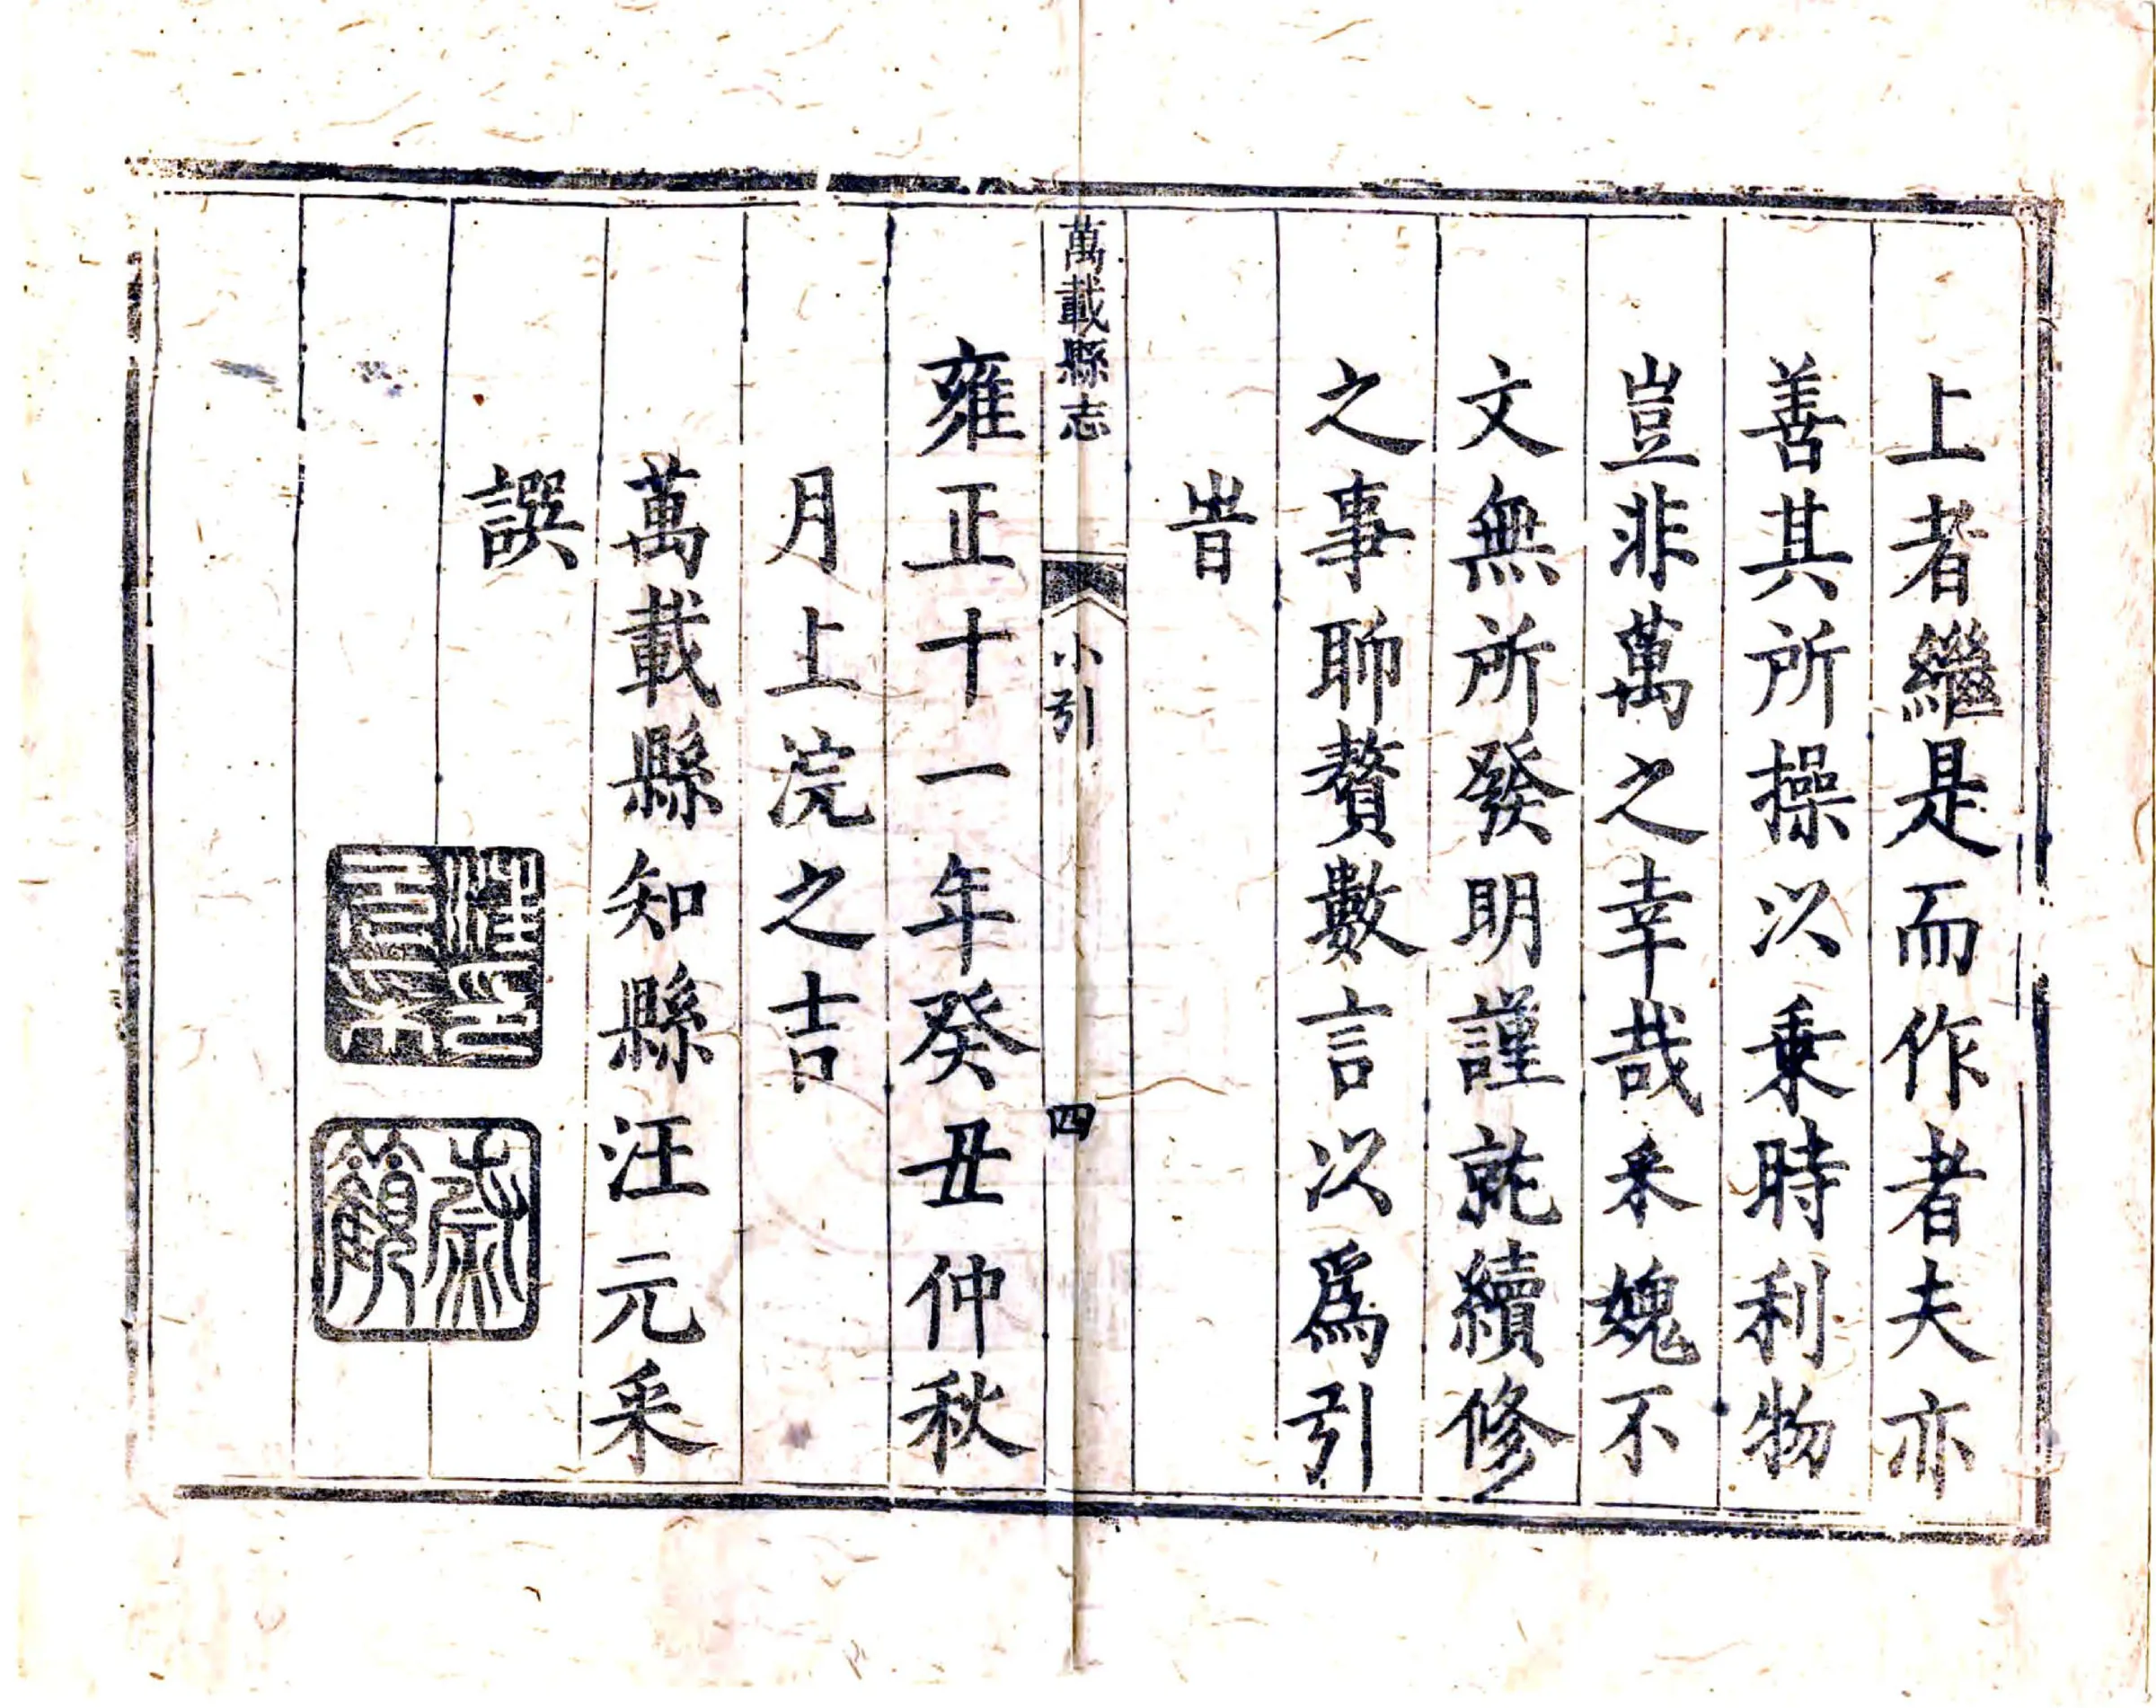 上者繼是而作者夫亦
善其所操以乗時利物
豈非萬之幸哉釆媿不
文無所發明謹就續修
之事聊贅數言以爲引
旹
萬載縣志
小引
四
雍正十一年癸丑仲秋
月上浣之吉
萬載縣知縣汪元采
譔
汪元采印